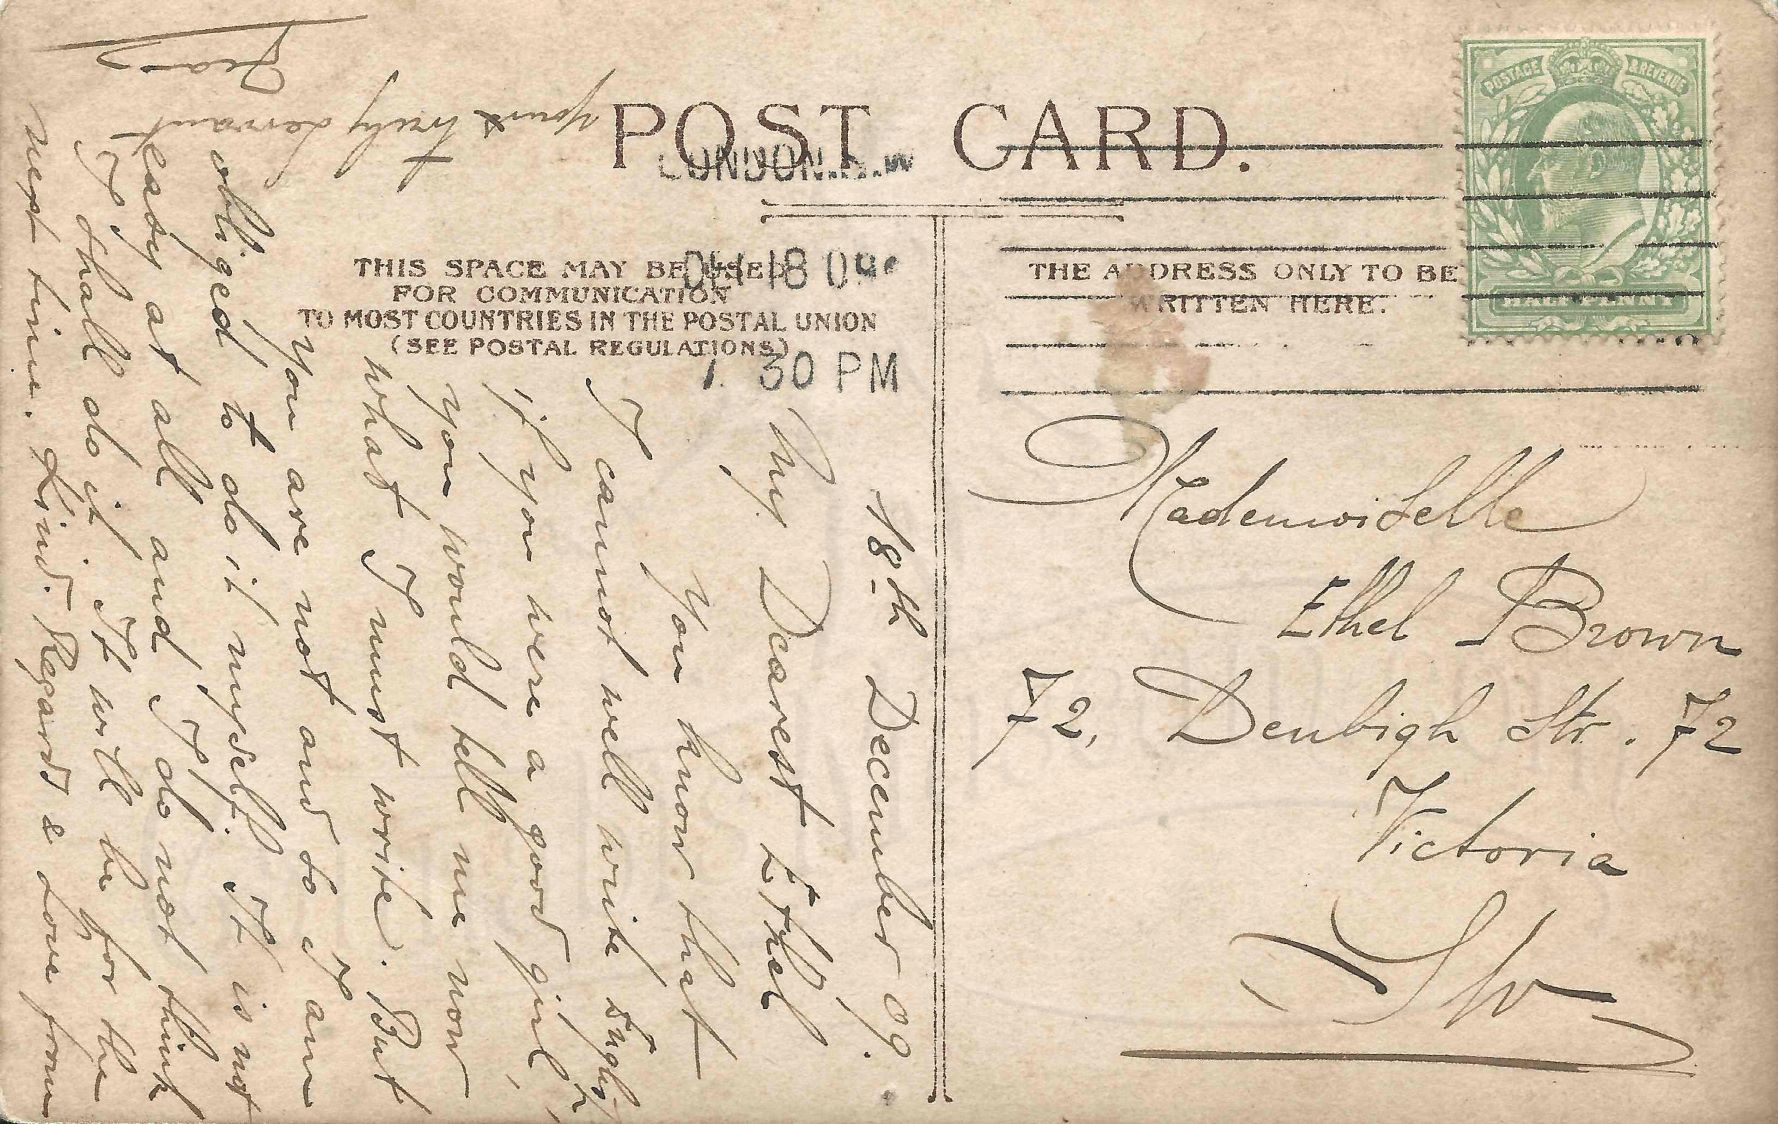 POST CARD.
LONDON. N.W
DEC 18 09
7. 30 PM
POSTAGE & REVENUE
THIS SPACE MAY BE USED
FOR COMMUNICATION
TO MOST COUNTRIES IN THE POSTAL UNION
(SEE POSTAL REGULATIONS)
THE ADDRESS ONLY TO BE
WRITTEN HERE.
18th December 09.
My Dearest Ethel
You know that
I cannot well write English
if you were a good girl,
you would tell me now
what I must write. But
you are not and so I am
obliged to do it myself. It is not
easy at all and I do not think
I shall do it. It will be for the
next time. Kind. Regards & Love from
yours truly servant
Mademoiselle
Ethel Brown
72, Denbigh Str. 72
Victoria
SW